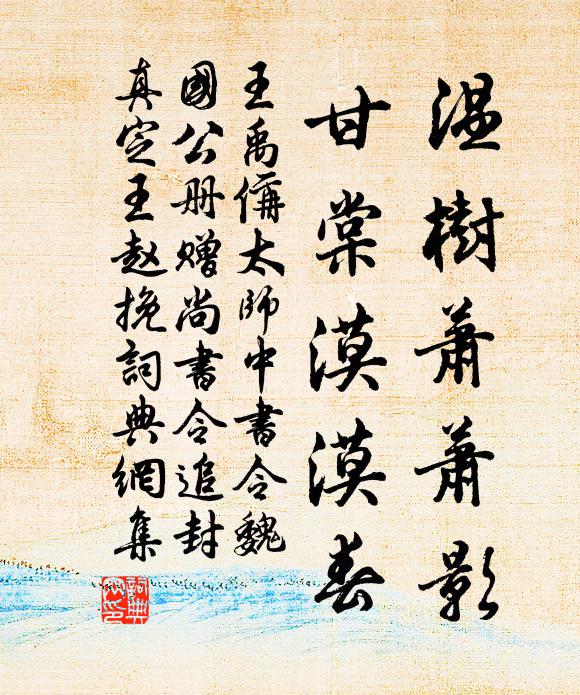 温樹蕭蕭影
甘棠漠漠春
王禹偁太師中書令魏
國公册贈尚書令追封
真定王趙挽詞典網集